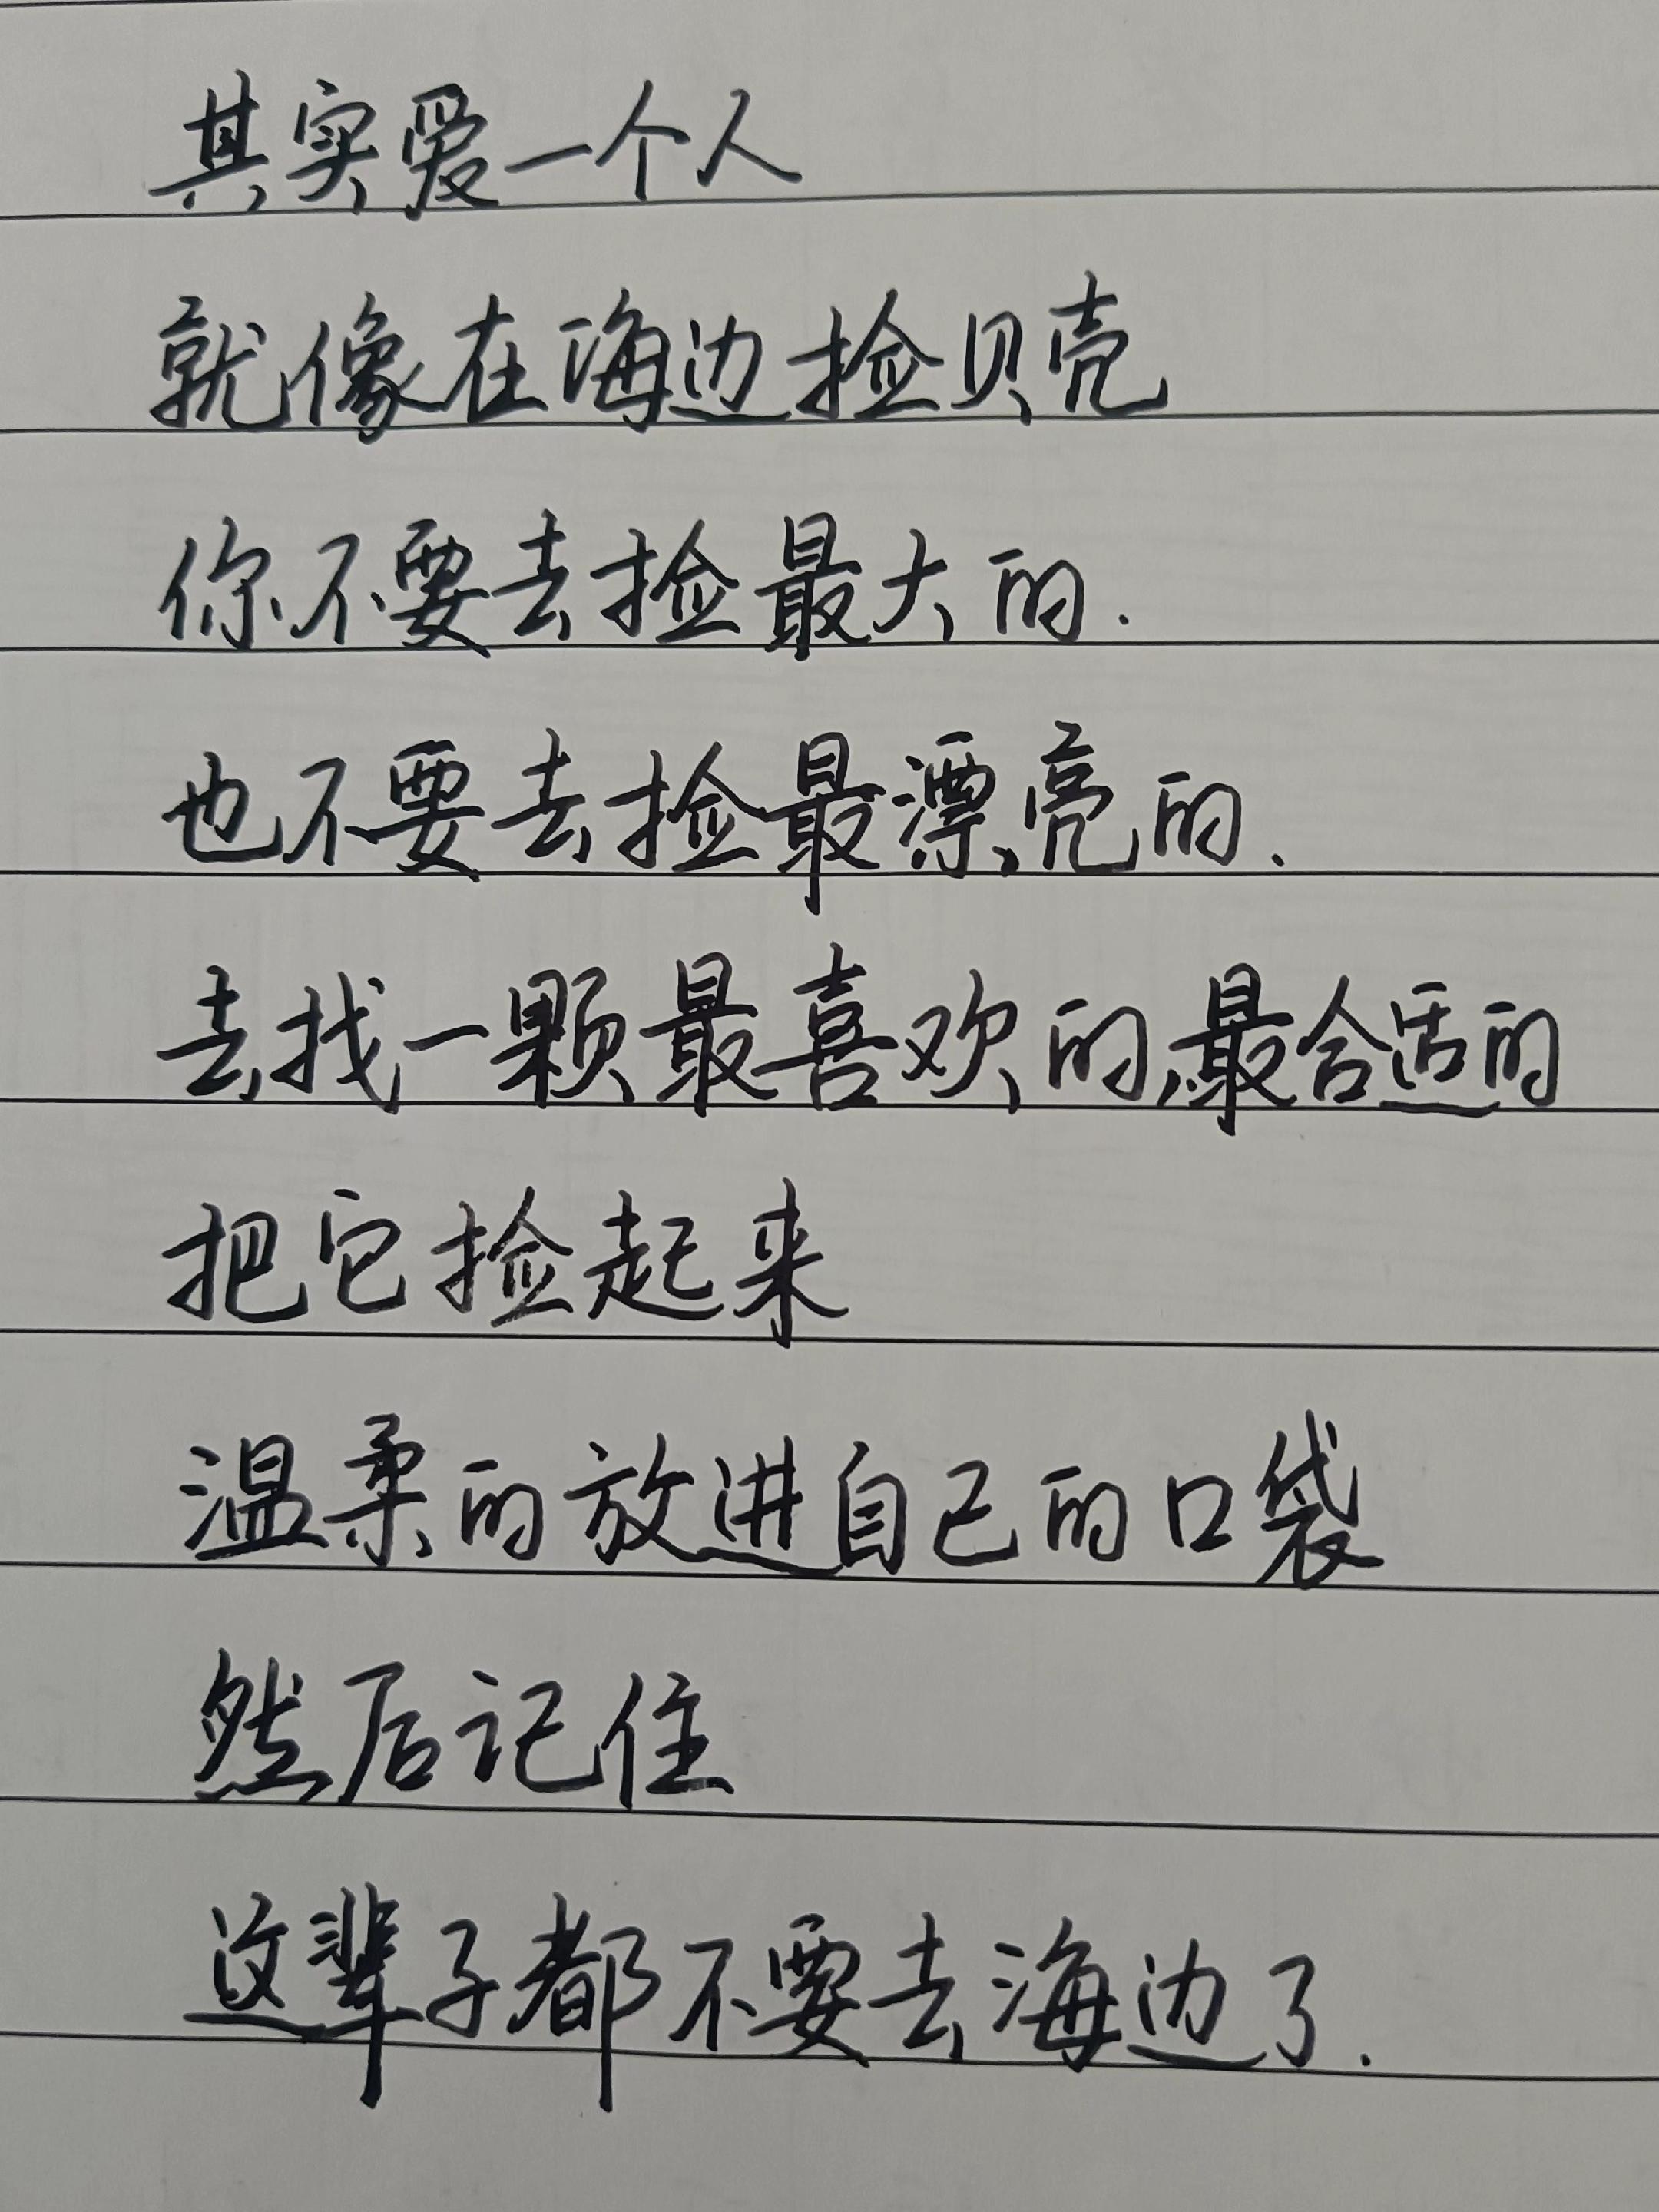 其实爱一个人
就像在海边捡贝壳
你不要去捡最大的.
也不要去捡最漂亮的.
去找一颗最喜欢的,最合适的
把它捡起来
温柔的放进自己的口袋
然后记住
这辈子都不要去海边了.